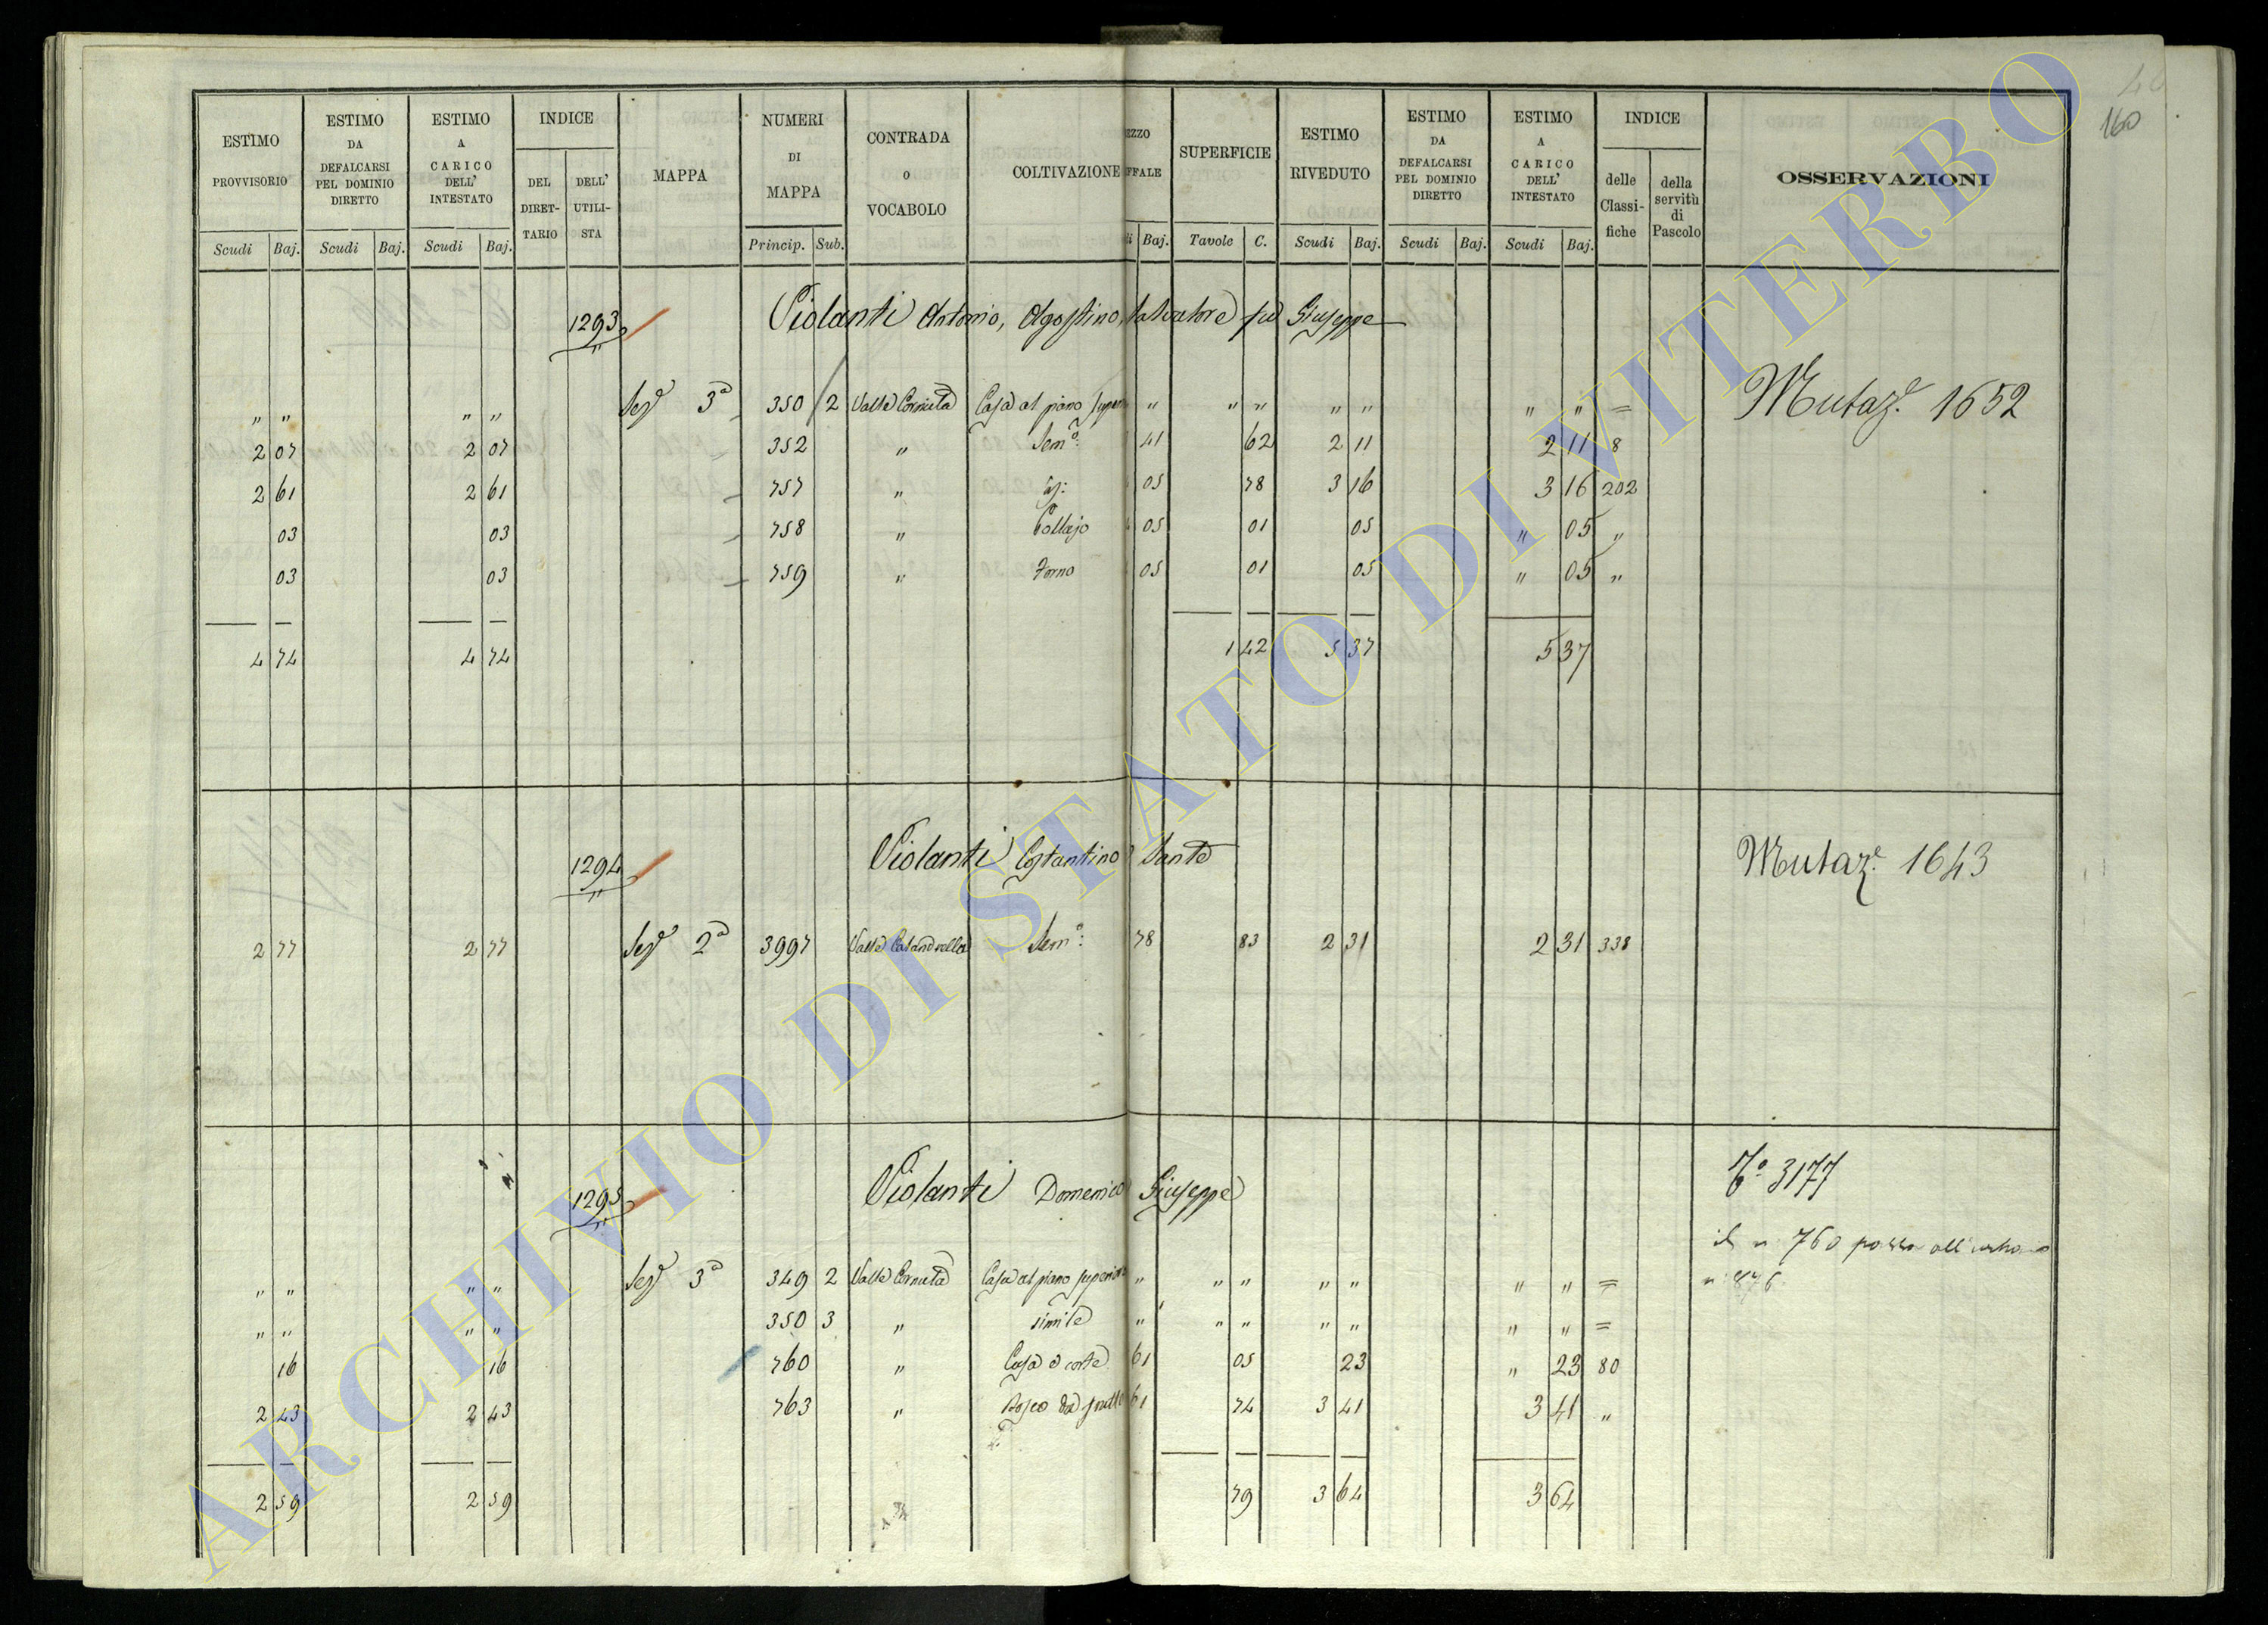 160
ESTIMO PROVVISORIO Scudi Baj.
ESTIMO DA DEFALCARSI PEL DOMINIO DIRETTO Scudi Baj.
ESTIMO A CARICO DELL' INTESTATO Scudi Baj.
INDICE DEL DIRET-TARIO DELL' UTILI-STA
MAPPA
NUMERI DI MAPPA Princip. Sub.
CONTRADA O VOCABOLO
COLTIVAZIONE
EZZO FFALE Baj.
SUPERFICIE Tavole C.
ESTIMO RIVEDUTO Scudi Baj.
ESTIMO DA DEFALCARSI PEL DOMINIO DIRETTO Scudi Baj.
ESTIMO A CARICO DELL' INTESTATO Scudi Baj.
INDICE delle Classi-fiche della servitù di Pascolo
OSSERVAZIONI
1293 Violanti Antonio, Agostino, Salvatore fu Giuseppe
" " " " Sezᵉ 3ᵃ 350 2 Valle Cornuta Casa al piano " " " " " " " = Mutazᵉ. 1652
2 07 2 07 352 " Semᵒ: 41 62 2 11 2 11 8
2 61 2 61 757 " 05 78 3 16 3 16 202
03 03 758 " 05 01 05 " 05 "
03 03 759 " Forno 05 01 05 " 05 "
4 74 4 74 1 42 5 37 5 37
1294 Violanti Costantino Sante Mutazᵉ. 1643
2 77 2 77 Sezᵉ 2ᵃ 3997 Valle Calandrella Semᵒ: 78 83 2 31 2 31 338
1295 Violanti Domenico Giuseppe 3177
il n 760 passa all'urbano
n. 876
" " " " Sezᵉ 3ᵃ 349 2 Valle Cornuta Casa al piano superiore " " " " " " " =
" " " " 350 3 " simile " " " " " " " =
16 16 760 " Casa e corte 61 05 23 " 23 80
2 43 2 43 763 " Bosco da frutto 61 74 3 41 3 41 "
2 59 2 59 79 3 64 3 64
ARCHIVIO DI STATO DI VITERBO